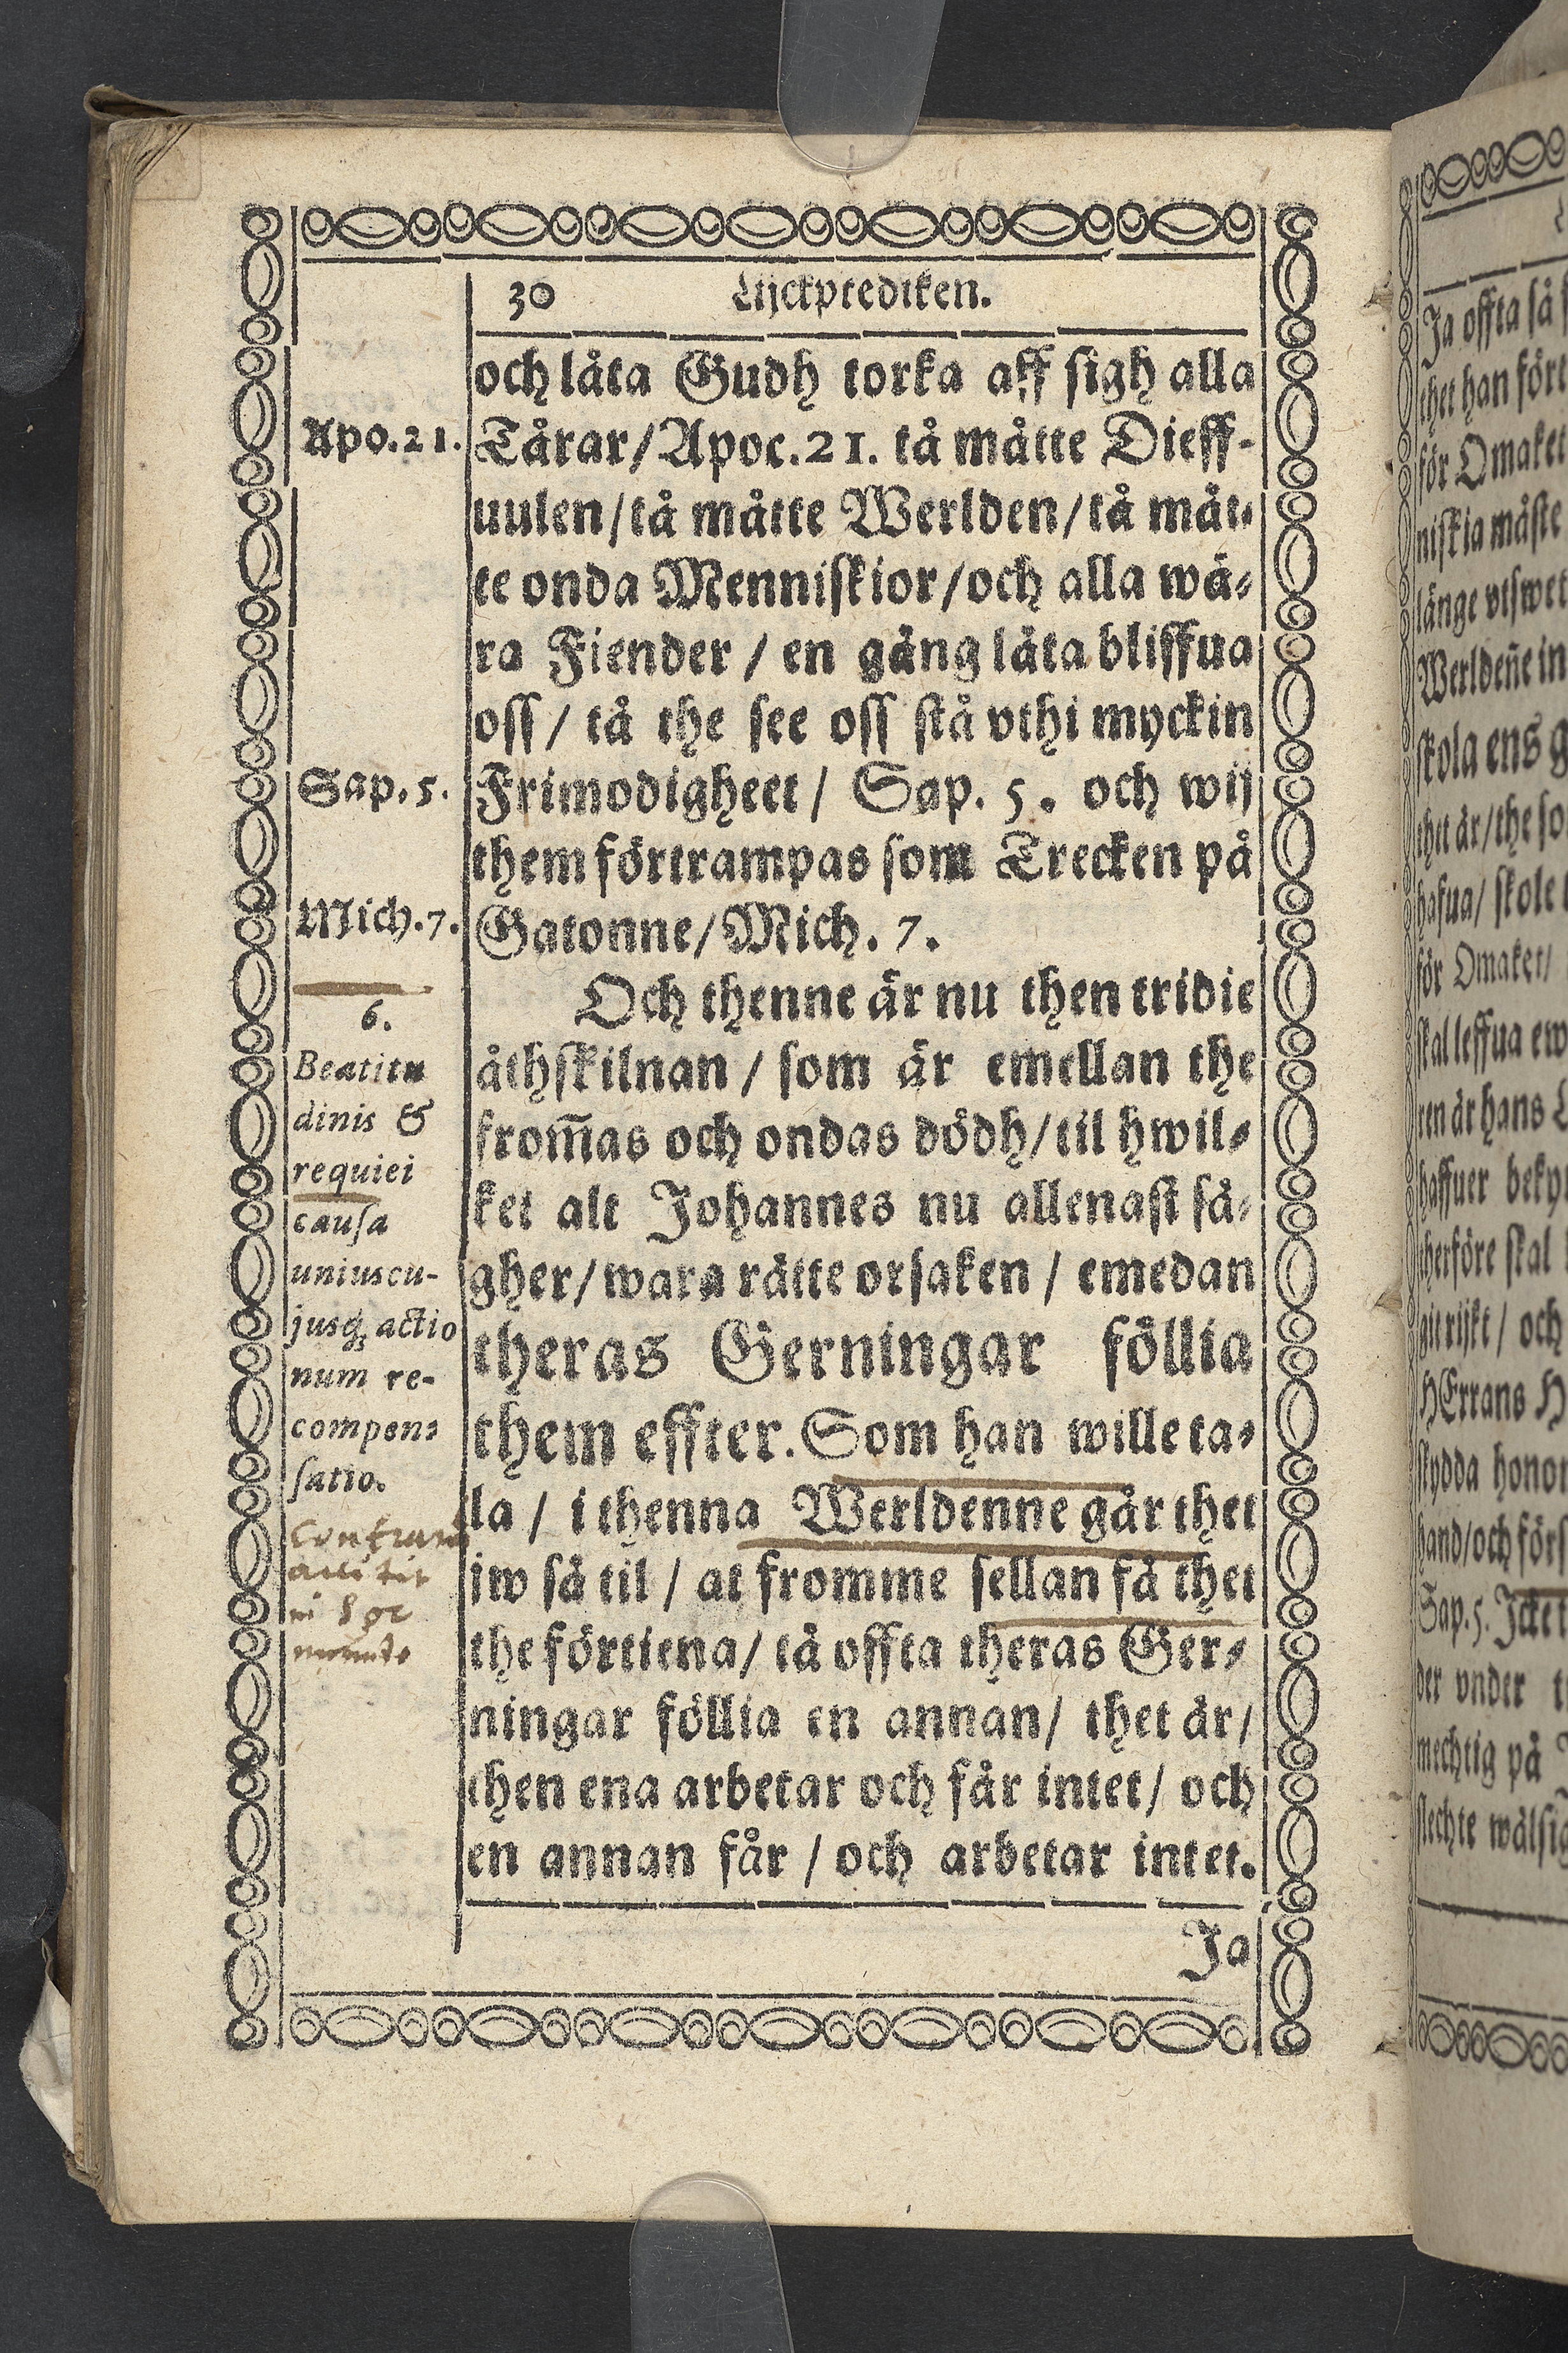 30 Lijckprediken.
och låta Gudh torka aff sigh alla
Apo. 21.
Tårar/Apoc. 21. tå måtte Dieff-
uulen/tå måtte Werlden/tå måt-
te onda Menniſkior/och alla wå-
ra Fiender / en gång låta bliffua
oſſ / tå the ſee oſſ ſtå vthi myckin
Sap. 5.
Frimodigheet / Sap. 5. och wij
them förtrampas ſom Trecken på
Mich. 7.
Gatonne/Mich. 7.
Och thenne är nu then tridie
åthſkilnan / ſom är emellan the
from̃as och ondas dödh/til hwil-
ket alt Johannes nu allenaſt ſä-
gher/wara rätte orſaken / emedan
theras Gerningar föllia
them effter. Som han wille ta-
la / i thenna Werldenne går thet
iw ſå til / at fromme ſellan få thet
the förtiena/ tå offta theras Ger-
ningar föllia en annan/ thet är/
then ena arbetar och får intet/ och
en annan får / och arbetar intet.
Ja
6.
Beatitu
dinis &
requiei
cauſa
uniuscu-
jusq; actio
num re-
compen-
ſatio.
in hoc
mundo
Ja offta ſå
thet han fört
för Omaket
niſkia måſte
länge vtſwet
Werldeñe in
ſkola ens g
thet är/the ſo
haſua/ ſkole
för Omaket/
ſkal leffua ew
ren är hans
haffuer beky
therföre ſkal
git rijkt / och
HErrans H
ſkydda honom
hand/och förſ
Sap. 5. Icket
der vnder
mechtig på
ſlechte wälſig